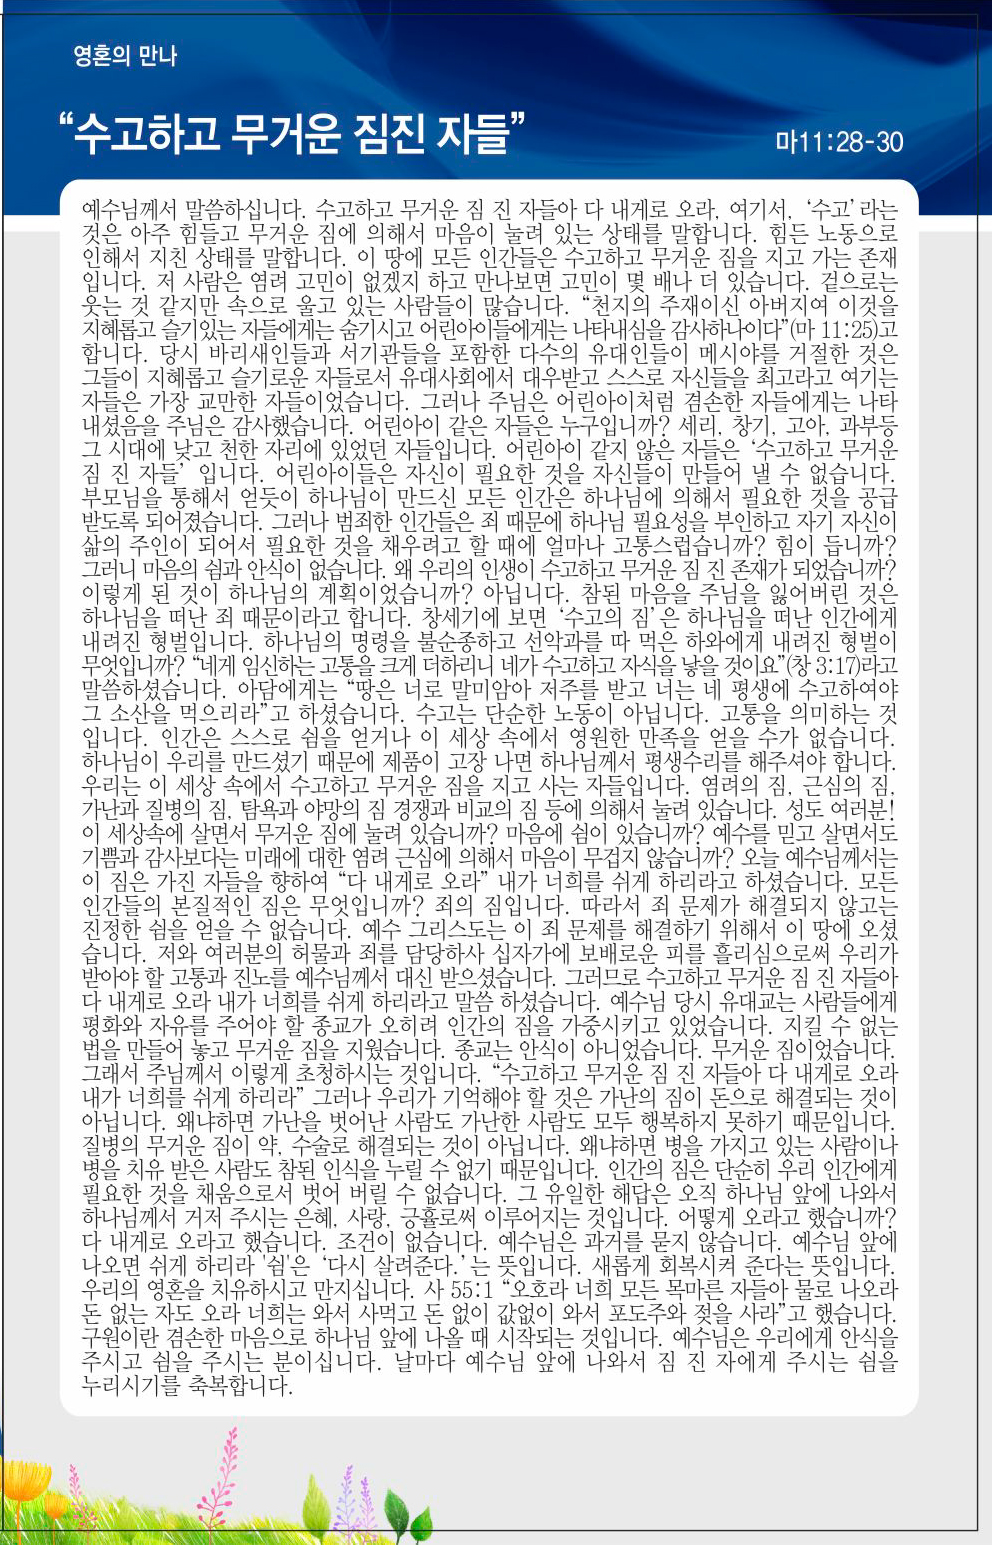 영혼의 만나
“수고하고 무거운 짐진 자들”
마11:28-30
예수님께서 말씀하십니다. 수고하고 무거운 짐 진 자들아 다 내게로 오라, 여기서, ‘수고’라는
것은 아주 힘들고 무거운 짐에 의해서 마음이 눌려 있는 상태를 말합니다. 힘든 노동으로
인해서 지친 상태를 말합니다. 이 땅에 모든 인간들은 수고하고 무거운 짐을 지고 가는 존재
입니다. 저 사람은 염려 고민이 없겠지 하고 만나보면 고민이 몇 배나 더 있습니다. 겉으로는
웃는 것 같지만 속으로 울고 있는 사람들이 많습니다. “천지의 주재이신 아버지여 이것을
지혜롭고 슬기있는 자들에게는 숨기시고 어린아이들에게는 나타내심을 감사하나이다”(마 11:25)고
합니다. 당시 바리새인들과 서기관들을 포함한 다수의 유대인들이 메시야를 거절한 것은
그들이 지혜롭고 슬기로운 자들로서 유대사회에서 대우받고 스스로 자신들을 최고라고 여기는
자들은 가장 교만한 자들이었습니다. 그러나 주님은 어린아이처럼 겸손한 자들에게는 나타
내셨음을 주님은 감사했습니다. 어린아이 같은 자들은 누구입니까? 세리, 창기, 고아, 과부등
그 시대에 낮고 천한 자리에 있었던 자들입니다. 어린아이 같지 않은 자들은 ‘수고하고 무거운
짐 진 자들’ 입니다. 어린아이들은 자신이 필요한 것을 자신들이 만들어 낼 수 없습니다.
부모님을 통해서 얻듯이 하나님이 만드신 모든 인간은 하나님에 의해서 필요한 것을 공급
받도록 되어졌습니다. 그러나 범죄한 인간들은 죄 때문에 하나님 필요성을 부인하고 자기 자신이
삶의 주인이 되어서 필요한 것을 채우려고 할 때에 얼마나 고통스럽습니까? 힘이 듭니까?
그러니 마음의 쉼과 안식이 없습니다. 왜 우리의 인생이 수고하고 무거운 짐 진 존재가 되었습니까?
이렇게 된 것이 하나님의 계획이었습니까? 아닙니다. 참된 마음을 주님을 잃어버린 것은
하나님을 떠난 죄 때문이라고 합니다. 창세기에 보면 ‘수고의 짐’은 하나님을 떠난 인간에게
내려진 형벌입니다. 하나님의 명령을 불순종하고 선악과를 따 먹은 하와에게 내려진 형벌이
무엇입니까? “네게 임신하는 고통을 크게 더하리니 네가 수고하고 자식을 낳을 것이요”(창 3:17)라고
말씀하셨습니다. 아담에게는 “땅은 너로 말미암아 저주를 받고 너는 네 평생에 수고하여야
그 소산을 먹으리라”고 하셨습니다. 수고는 단순한 노동이 아닙니다. 고통을 의미하는 것
입니다. 인간은 스스로 쉼을 얻거나 이 세상 속에서 영원한 만족을 얻을 수가 없습니다.
하나님이 우리를 만드셨기 때문에 제품이 고장 나면 하나님께서 평생수리를 해주셔야 합니다.
우리는 이 세상 속에서 수고하고 무거운 짐을 지고 사는 자들입니다. 염려의 짐, 근심의 짐,
가난과 질병의 짐, 탐욕과 야망의 짐 경쟁과 비교의 짐 등에 의해서 눌려 있습니다. 성도 여러분!
이 세상속에 살면서 무거운 짐에 눌려 있습니까? 마음에 쉼이 있습니까? 예수를 믿고 살면서도
기쁨과 감사보다는 미래에 대한 염려 근심에 의해서 마음이 무겁지 않습니까? 오늘 예수님께서는
이 짐은 가진 자들을 향하여 “다 내게로 오라” 내가 너희를 쉬게 하리라고 하셨습니다. 모든
인간들의 본질적인 짐은 무엇입니까? 죄의 짐입니다. 따라서 죄 문제가 해결되지 않고는
진정한 쉼을 얻을 수 없습니다. 예수 그리스도는 이 죄 문제를 해결하기 위해서 이 땅에 오셨
습니다. 저와 여러분의 허물과 죄를 담당하사 십자가에 보배로운 피를 흘리심으로써 우리가
받아야 할 고통과 진노를 예수님께서 대신 받으셨습니다. 그러므로 수고하고 무거운 짐 진 자들아
다 내게로 오라 내가 너희를 쉬게 하리라고 말씀 하셨습니다. 예수님 당시 유대교는 사람들에게
평화와 자유를 주어야 할 종교가 오히려 인간의 짐을 가중시키고 있었습니다. 지킬 수 없는
법을 만들어 놓고 무거운 짐을 지웠습니다. 종교는 안식이 아니었습니다. 무거운 짐이었습니다.
그래서 주님께서 이렇게 초청하시는 것입니다. “수고하고 무거운 짐 진 자들아 다 내게로 오라
내가 너희를 쉬게 하리라” 그러나 우리가 기억해야 할 것은 가난의 짐이 돈으로 해결되는 것이
아닙니다. 왜냐하면 가난을 벗어난 사람도 가난한 사람도 모두 행복하지 못하기 때문입니다.
질병의 무거운 짐이 약, 수술로 해결되는 것이 아닙니다. 왜냐하면 병을 가지고 있는 사람이나
병을 치유 받은 사람도 참된 인식을 누릴 수 없기 때문입니다. 인간의 짐은 단순히 우리 인간에게
필요한 것을 채움으로서 벗어 버릴 수 없습니다. 그 유일한 해답은 오직 하나님 앞에 나와서
하나님께서 거저 주시는 은혜, 사랑, 긍휼로써 이루어지는 것입니다. 어떻게 오라고 했습니까?
다 내게로 오라고 했습니다. 조건이 없습니다. 예수님은 과거를 묻지 않습니다. 예수님 앞에
나오면 쉬게 하리라 '쉼'은 ‘다시 살려준다.’는 뜻입니다. 새롭게 회복시켜 준다는 뜻입니다.
우리의 영혼을 치유하시고 만지십니다. 사 55:1 “오호라 너희 모든 목마른 자들아 물로 나오라
돈 없는 자도 오라 너희는 와서 사먹고 돈 없이 값없이 와서 포도주와 젖을 사라”고 했습니다.
구원이란 겸손한 마음으로 하나님 앞에 나올 때 시작되는 것입니다. 예수님은 우리에게 안식을
주시고 쉼을 주시는 분이십니다. 날마다 예수님 앞에 나와서 짐 진 자에게 주시는 쉼을
누리시기를 축복합니다.